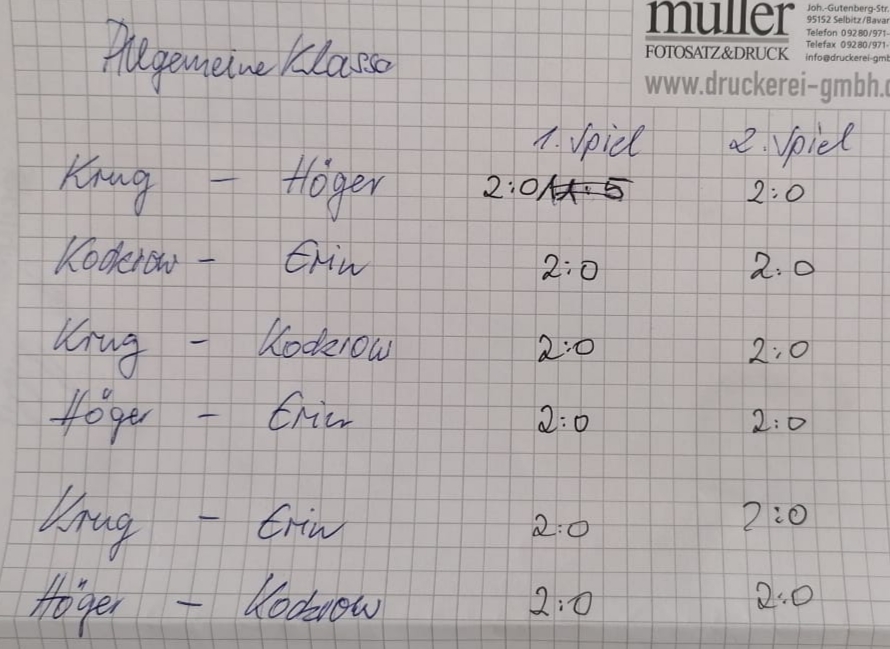 müller
FOTOSATZ&DRUCK
Joh.-Gutenberg-Str.
95152 Selbitz/Bavar
Telefon 09280/971-
Telefax 09280/971-
info@druckerei-gmb
www.druckerei-gmbh.d
Allgemeine Klasse
1. Spiel 2. Spiel
Krug - Höger 2:0 2:0
Kodzrow - Erin 2:0 2:0
Krug - Kodzrow 2:0 2:0
Höger - Erin 2:0 2:0
Krug - Erin 2:0 2:0
Höger - Kodzrow 2:0 2:0